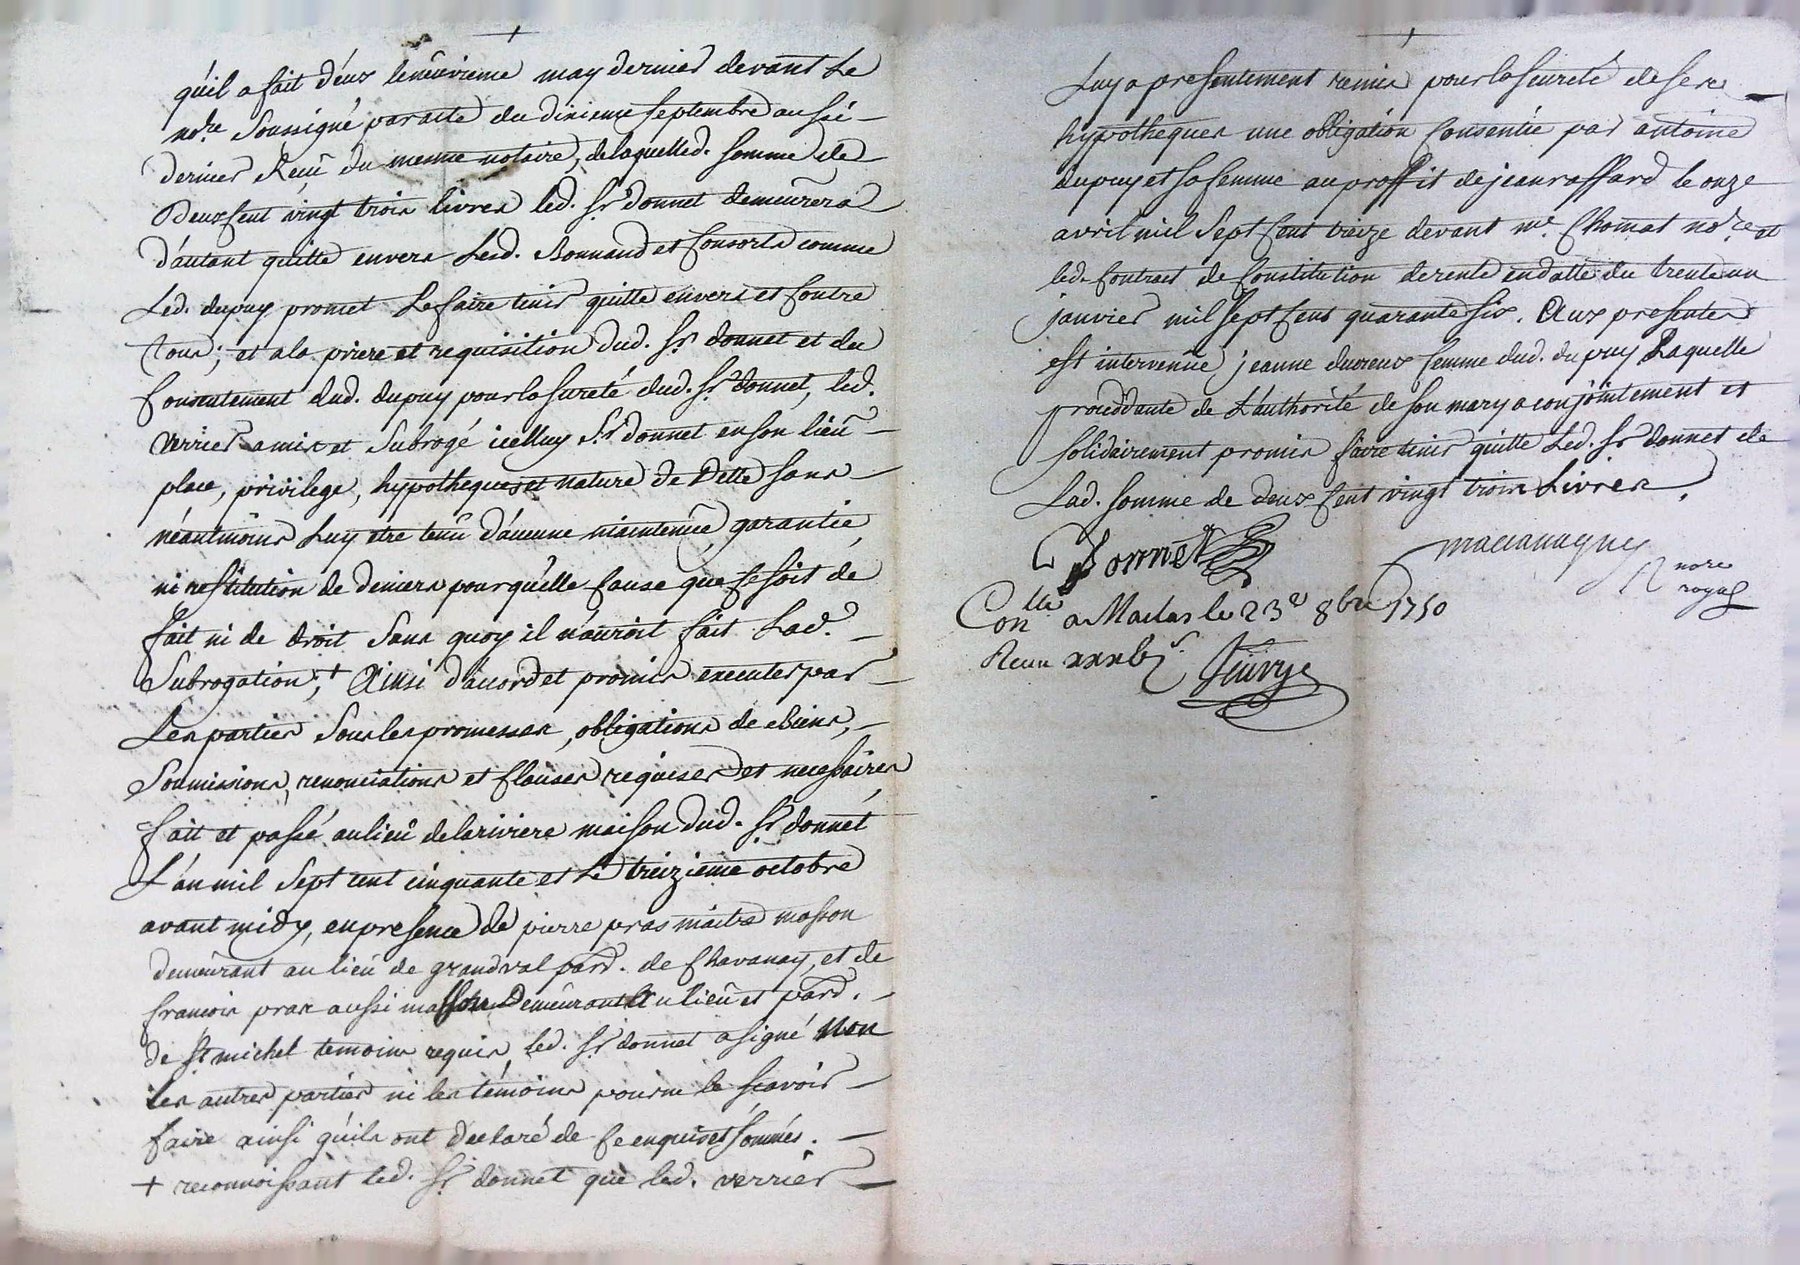 qu'il a fait d'eux le neuvieme may dernier devant le
no.re soussigné par acte du dixieme septembre aussi
dernier Reçu du meme notaire, de laquelle d. somme de
Deux cent vingt trois livres led. sr donnet demeurera
d'autant quitte envers Lesd. Bonnand et consorts comme
Led. dupuy promet Le faire tenir quitte envers et contre
tous; et a la priere et requisition dud. sr donnet et du
consentement dud. dupuy pour la sureté dud. sr donnet, led.
verrier a mis et subrogé icelluy Sr donnet en son lieu
place, privilege, hypotheques et nature de Dette sans
néantmoins Luy etre tenu d'aucune maintenüe, garantie,
ni restitution de deniers pour qu'elle cause que ce soit de
fait ni de droit sans quoy il n'auroit fait Lad.
subrogation; + Ainsi d'accord et promis executer par
Les parties sous les promesses, obligations de Biens,
soumissions, renonciations et clauses requises et necessaires
fait et passé au lieu de la riviere maison dud. sr donnet
L'an mil sept cent cinquante et Le treizieme octobre
avant midy, en presence de pierre pras maitre masson
demeurant au lieu de grandval parr. de Chavanay, et de
francois pras aussi masson Demeurant au lieu et parr.
de st michel temoins requis, led. sr donnet a signé non
les autres parties ni les témoins pour ne le scavoir
faire ainsi qu'ils ont declaré de ce enquis et sommés.
+ reconnoissant led. sr donnet que led. verrier
Luy a presentement remis pour la seureté de ses
hypotheques une obligation consentie par antoine
dupuy et sa femme au proffit de jean raffard le onze
avril mil sept cent treize devant me. Chomat no.re et
led. contract de constitution de rente en datte du trente un
janvier mil sept cent quarante six. Aux presentes
est intervenüe jeanne duvreux femme dud. dupuy Laquelle
proceddante de L'authorité de son mary a conjointement et
solidairement promis faire tenir quitte Led. sr donnet de
Lad. somme de deux cent vingt trois Livres.
Donnet
nore
royal
Con.lle a Maclas le 23e 8bre 1750
Recu